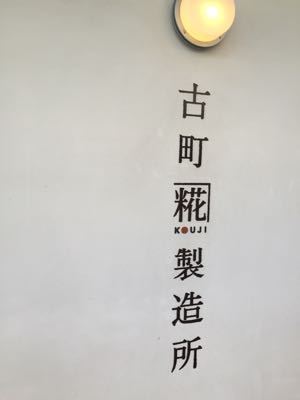 古町糀製造所
KOUJI